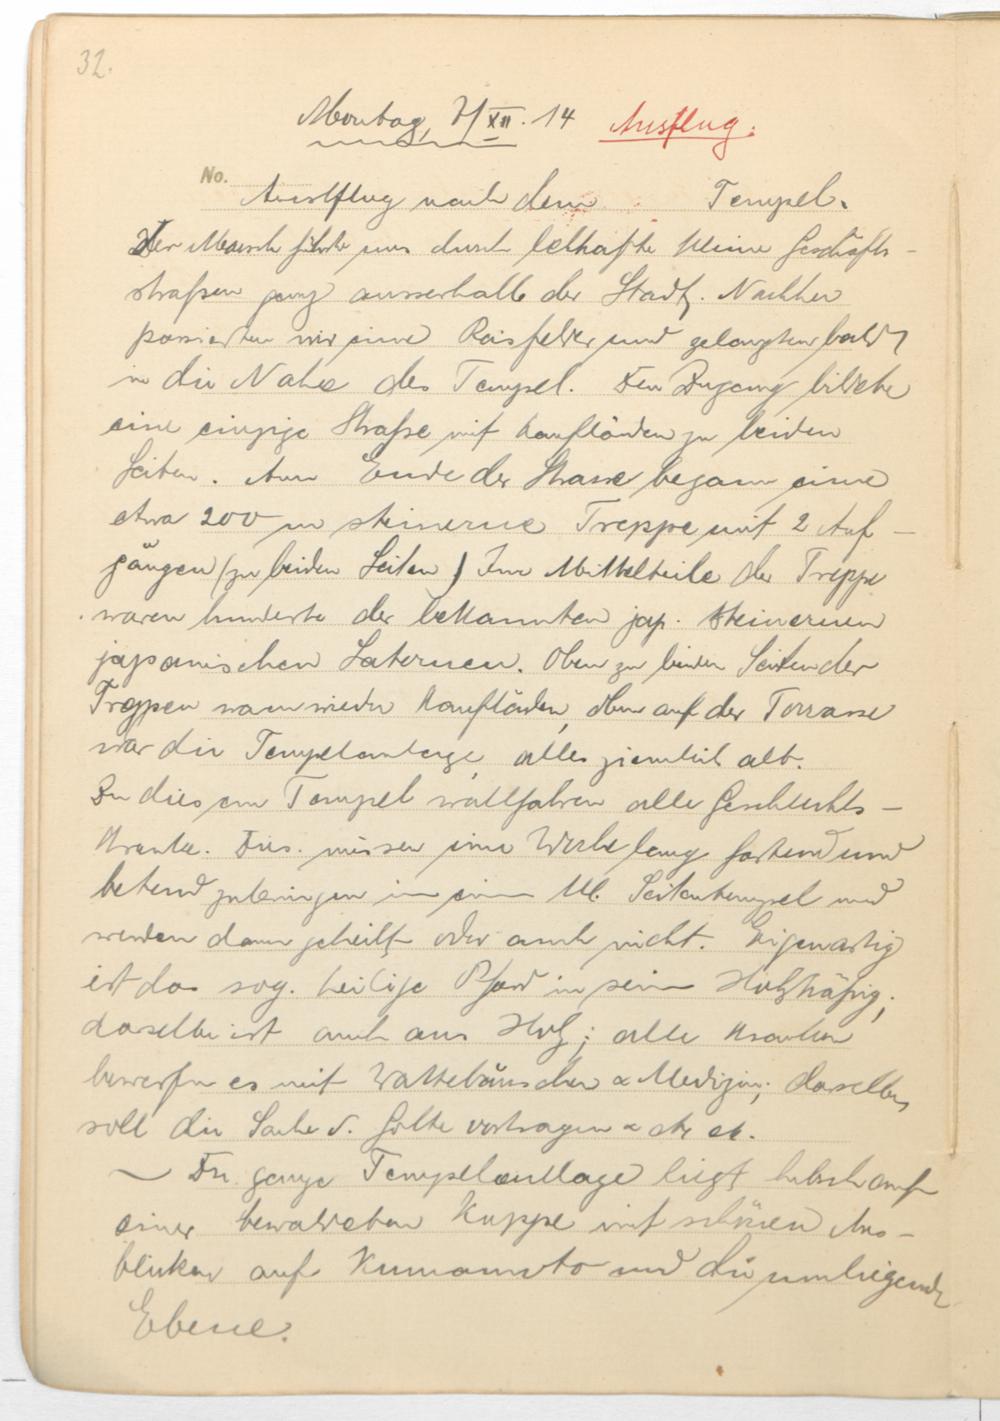 32.
Montag, 7/XII. 14 Ausflug.
No.
Ausflug nach dem Tempel.
Der Marsch führte uns durch lebhafte kleine Geschäfts-
straßen ganz ausserhalb der Stadt. Nachher
passierten wir eine Reisfelder und gelangten bald
in die Nähe des Tempel. Den Zugang bildete
eine einzige Straße mit Kaufläden zu beiden
Seiten. Am Ende der Strasse begann eine
etwa 200 m steinerne Treppe mit 2 Auf-
gängen (zu beiden Seiten) Im Mittelteile der Treppe
waren hunderte der bekannten jap. steinernen
japanischen Laternen. Oben zu beiden Seiten der
Treppen waren wieder Kaufläden, oben auf der Terrasse
war die Tempelanlage, alles ziemlich alt.
Zu diesem Tempel wallfahren alle Geschlechts-
kranke. Dies. müssen eine Woche lang fastend und
betend zubringen in einem kl. Seitentempel und
werden dann geheilt oder auch nicht. Eigenartig
ist das sog. heilige Pferd in seinem Holzkäfig;
dasselbe ist auch aus Holz; alle Kranken
bewerfen es mit Wattebäuschen & Medizin; dasselbe
soll die Sache d. Gotte vortragen & etc etc.
— Die ganze Tempelanlage liegt hübsch auf
einer bewaldeten Kuppe mit schönen Aus-
blicken auf Kumamoto und die umliegende
Ebene.